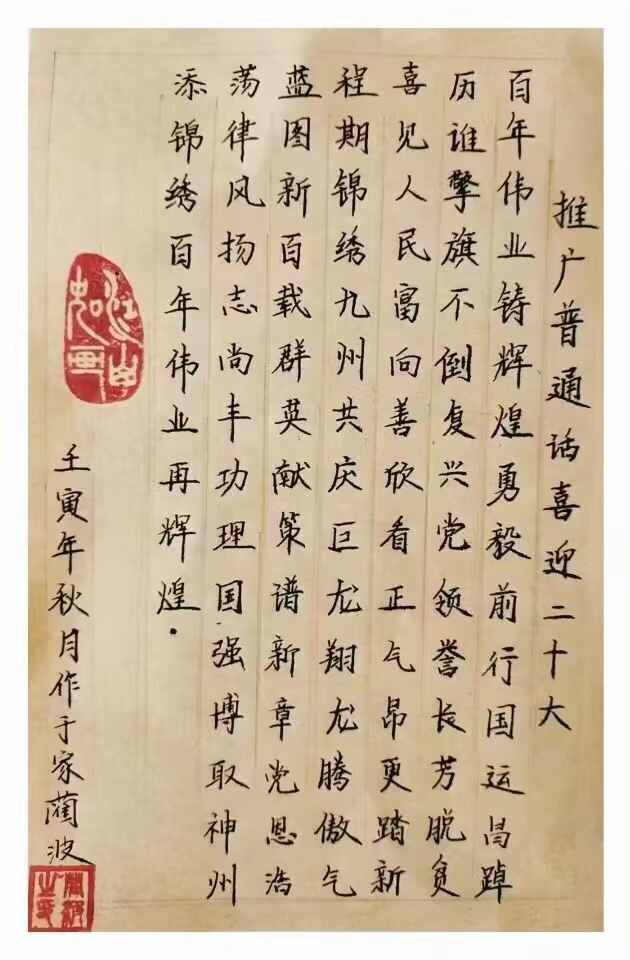 推广普通话喜迎二十大
百年伟业铸辉煌勇毅前行国运昌踔
历谁擎旗不倒复兴党领誉长芳脱贫
喜见人民富向善欣看正气昂更踏新
程期锦绣九州共庆巨龙翔龙腾傲气
蓝图新百载群英献策谱新章党恩浩
荡律风扬志尚丰功理国强博取神州
添锦绣百年伟业再辉煌.
江山如画
壬寅年秋月作于家蔺波